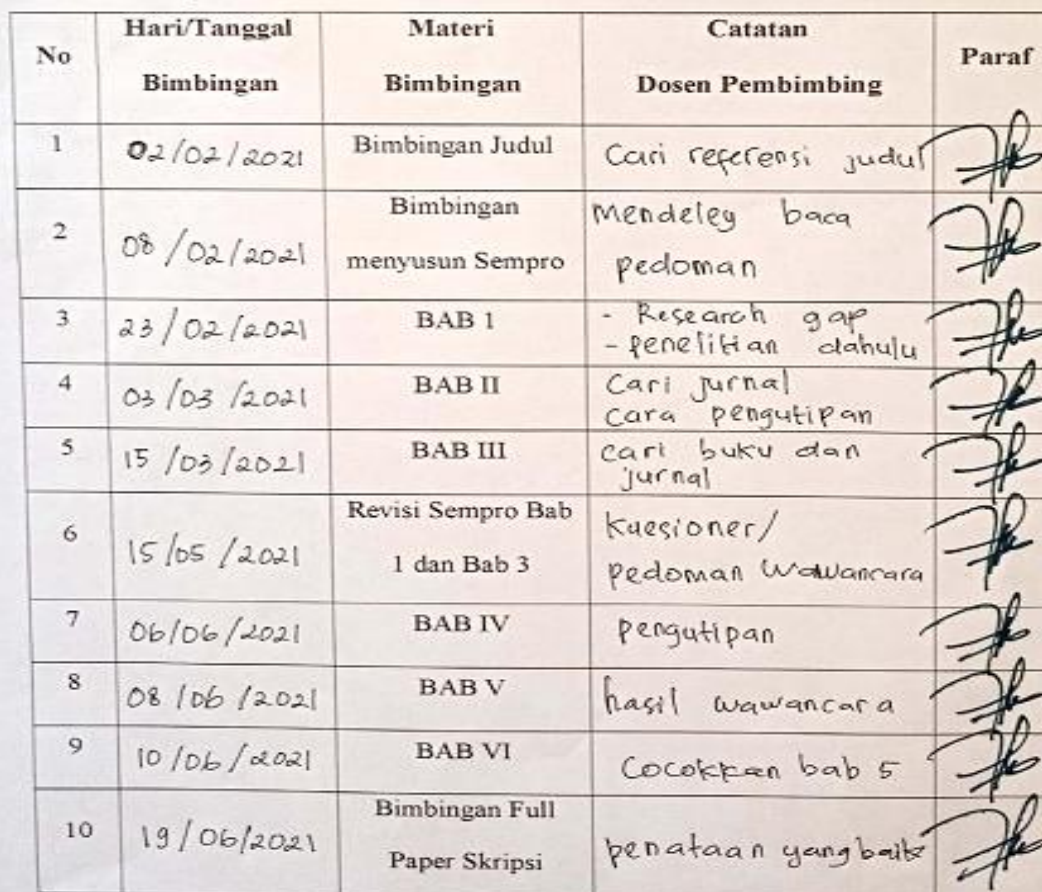 No Hari/Tanggal Bimbingan Materi Bimbingan Catatan Dosen Pembimbing Paraf
1 02/02/2021 Bimbingan Judul Cari referensi judul
2 08/02/2021 Bimbingan menyusun Sempro Mendeley baca pedoman
3 23/02/2021 BAB 1 - Research gap
- penelitian dahulu
4 03/03/2021 BAB II Cari jurnal
Cara pengutipan
5 15/03/2021 BAB III cari buku dan
jurnal
6 15/05/2021 Revisi Sempro Bab 1 dan Bab 3 kuesioner/
pedoman wawancara
7 06/06/2021 BAB IV pengutipan
8 08/06/2021 BAB V hasil wawancara
9 10/06/2021 BAB VI Cocokkan bab 5
10 19/06/2021 Bimbingan Full Paper Skripsi penataan yang baik